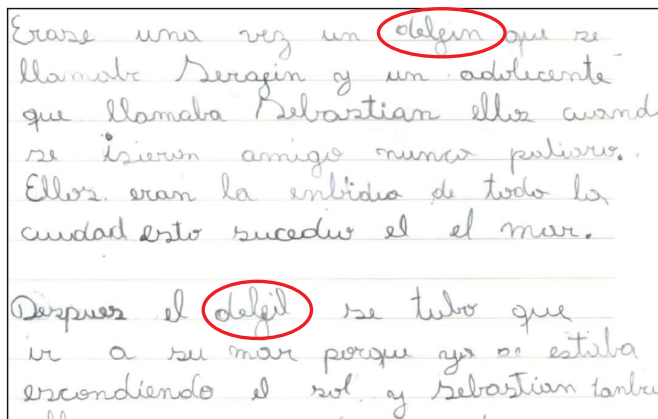 Erase una vez un delgin que se
llamabr Seragin y un adolecente
que llamaba Sebastian ellos cuand
se isieron amigo nunca peliaro.
Ellos eran la enbidia de todo la
cuudad esto sucedio el el mar.
Despues el delgil se tubo que
ir a su mar porque ya se estaba
escondiendo el sol y sebastian tanbie